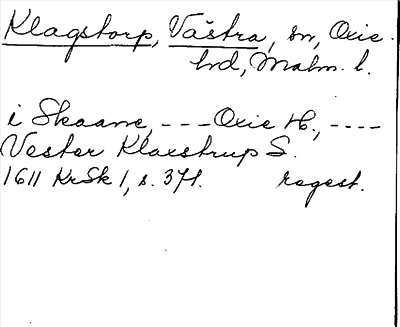 Klagstorp, Västra, sn, Oxie
hrd, Malm. l.
i Skaane, --- Oxie H., ----
Vester Klaxstrup S.
1611 KrSk 1, s. 371. regest.